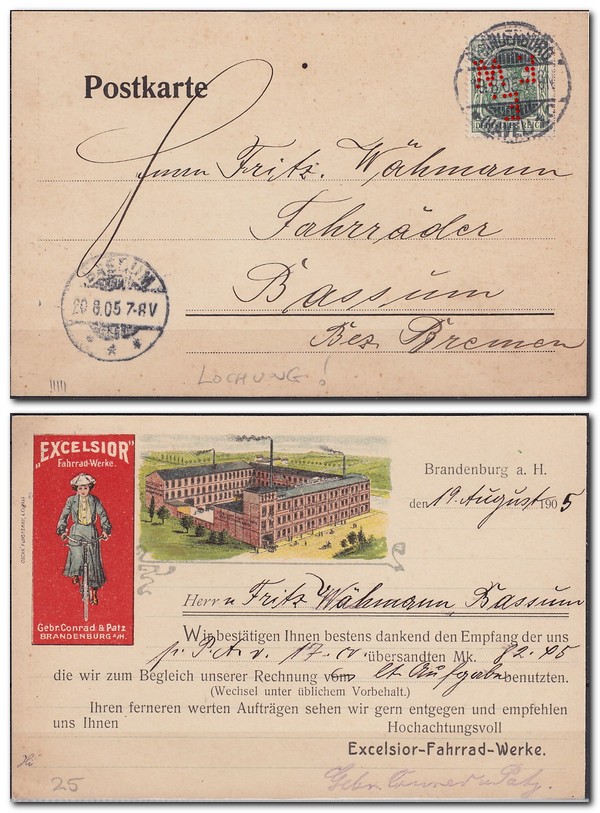 Postkarte
BRANDENBURG
(HAVEL)
DEUTSCHES REICH
Herrn Fritz Wähmann
Fahrräder
Bassum
Bez. Bremen
BASSUM
20 8.05 7-8V
LOCHUNG!
"EXCELSIOR"
Fahrrad-Werke.
Gebr. Conrad & Patz
BRANDENBURG a/H.
Brandenburg a. H.
den 19. August 1905
Herrn Fritz Wähmann, Bassum
Wir bestätigen Ihnen bestens dankend den Empfang der uns
p. P.A.v. 17. cr. übersandten Mk. 82.05
die wir zum Begleich unserer Rechnung vom lt. Aufgabe benutzten.
(Wechsel unter üblichem Vorbehalt.)
Ihren ferneren werten Aufträgen sehen wir gern entgegen und empfehlen
uns Ihnen Hochachtungsvoll
Excelsior-Fahrrad-Werke.
Gebr. Conrad & Patz.
25